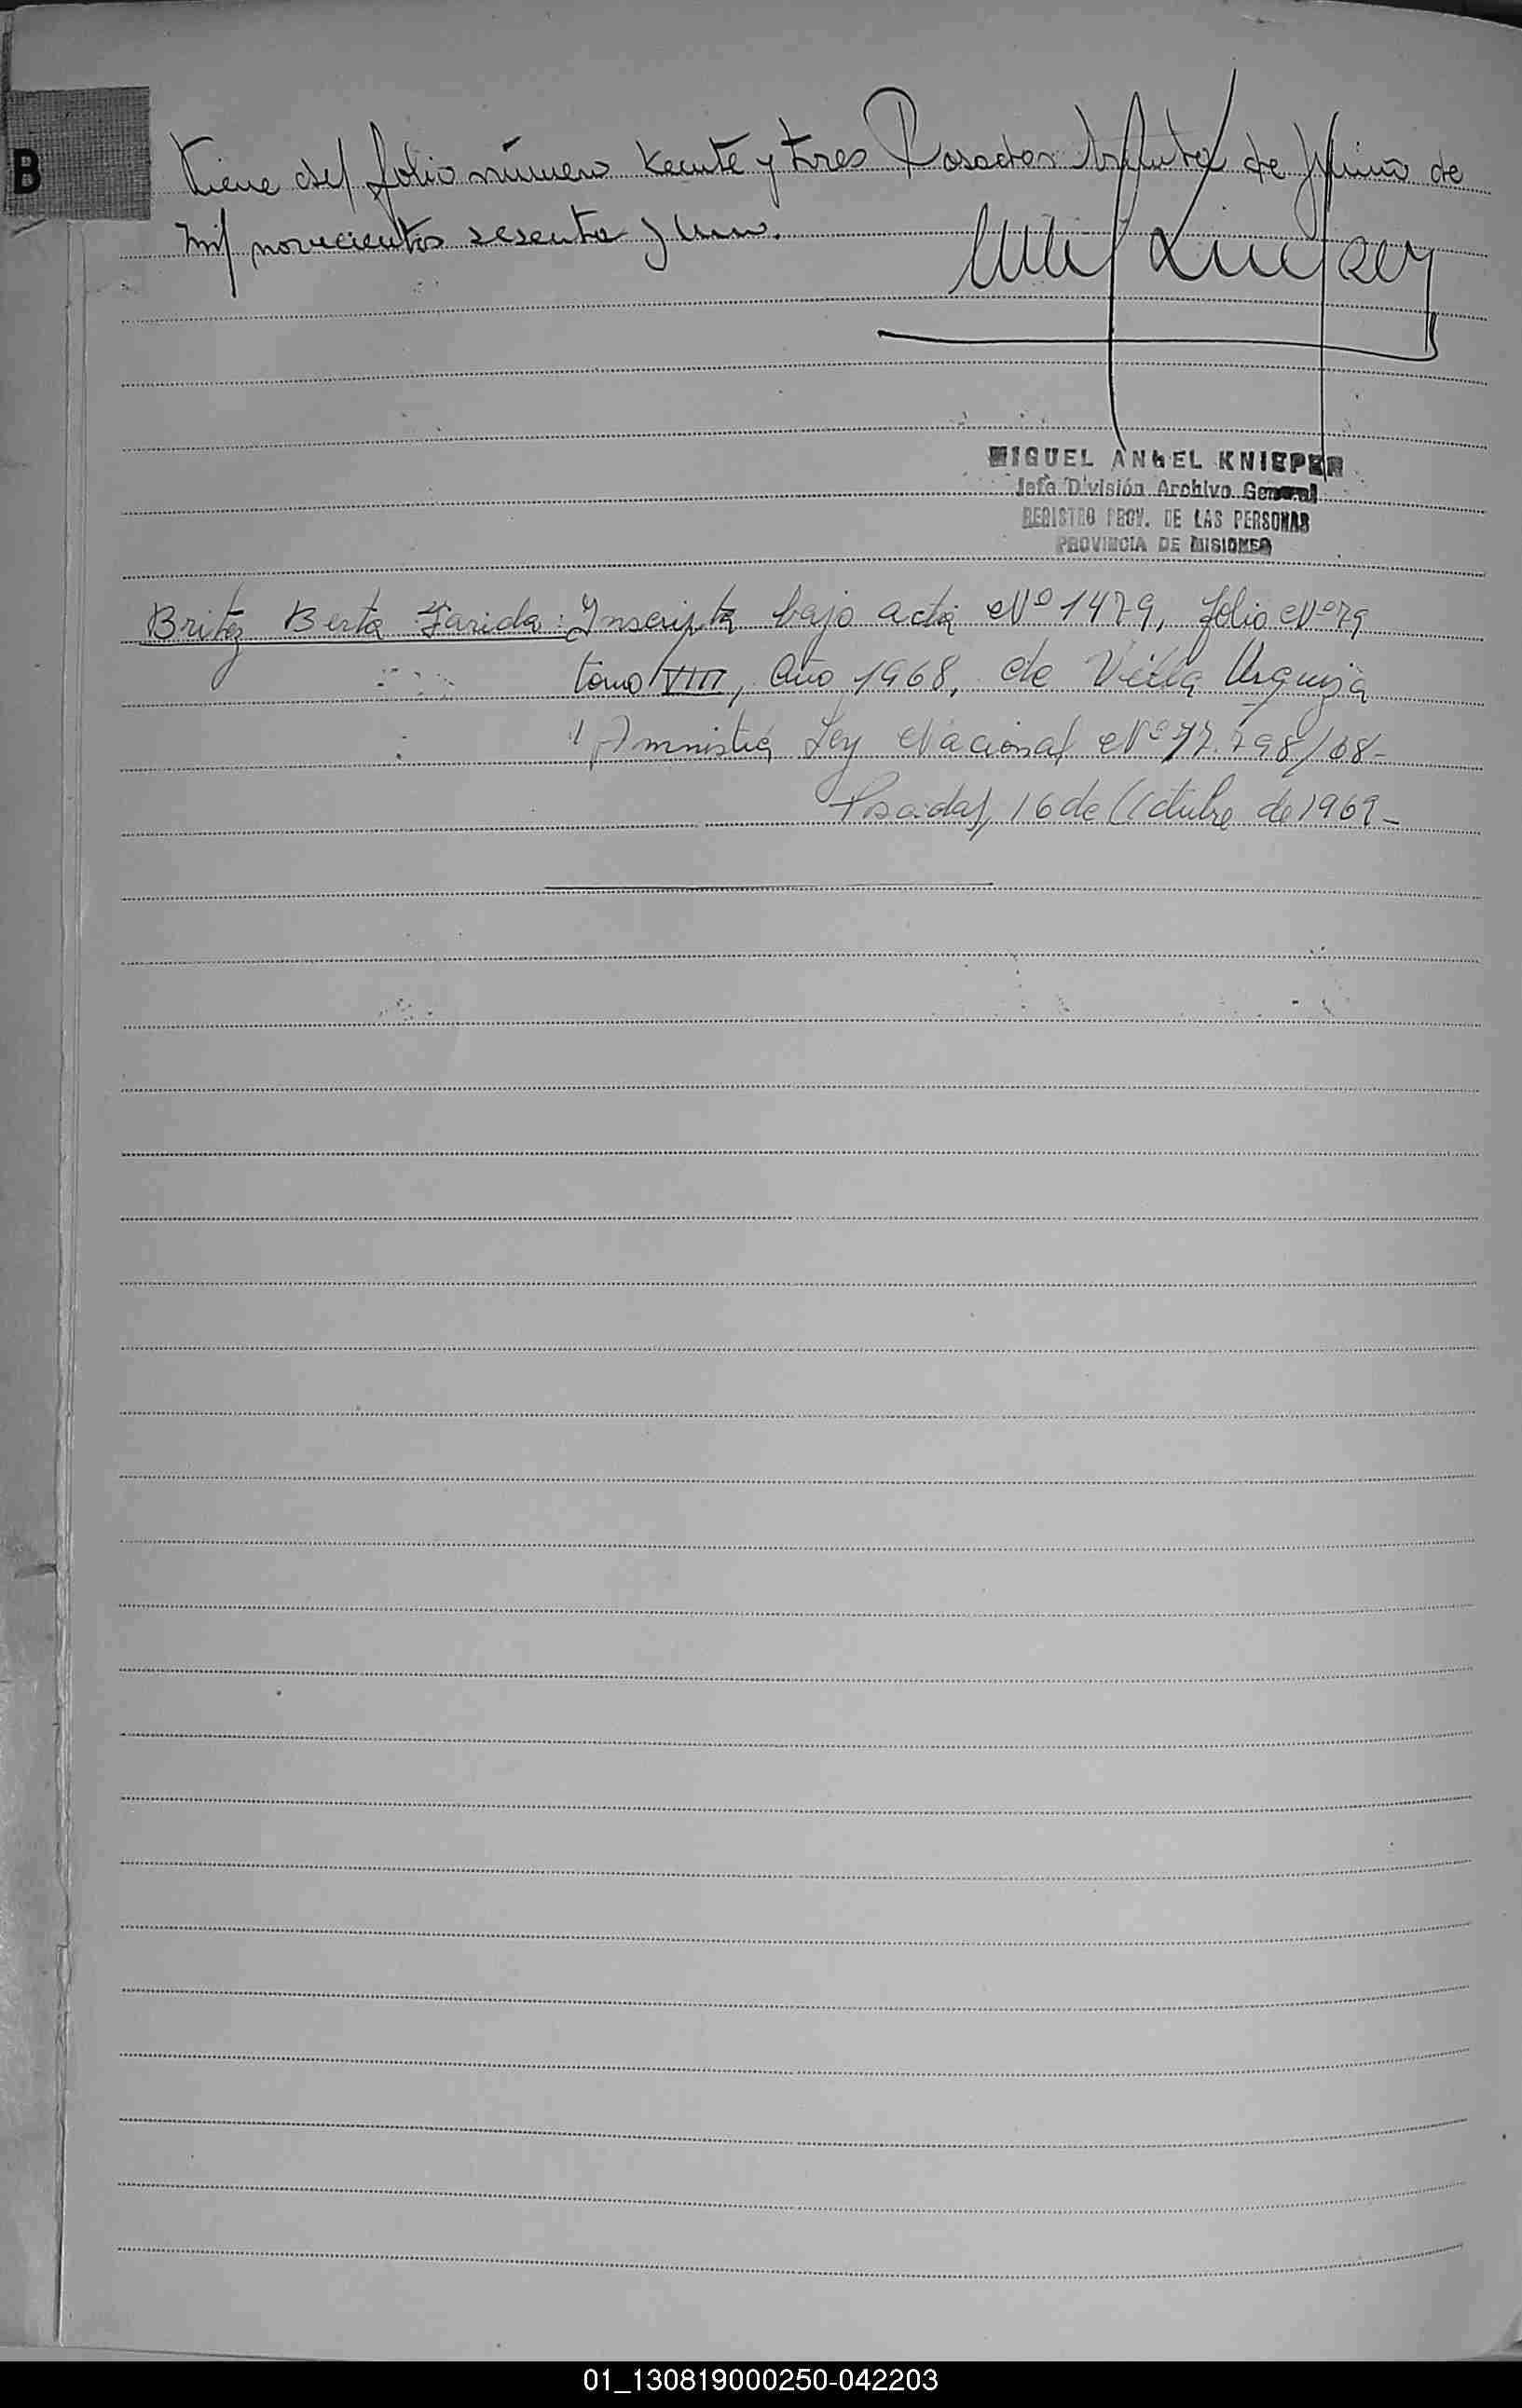 B
Viene del folio número veinte y tres Posadas treinta de Junio de
mil novecientos sesenta y uno.
MIGUEL ANGEL KNIEPER
Jefe División Archivo General
REGISTRO PROV. DE LAS PERSONAS
PROVINCIA DE MISIONES
Britez Berta Farida: Inscripta bajo acta Nº 1479, folio Nº 79
tomo VIII, Año 1968, de Villa Urquiza
Amnistía Ley Nacional Nº 17.798/68-
Posadas, 16 de Octubre de 1969-
01_130819000250-042203